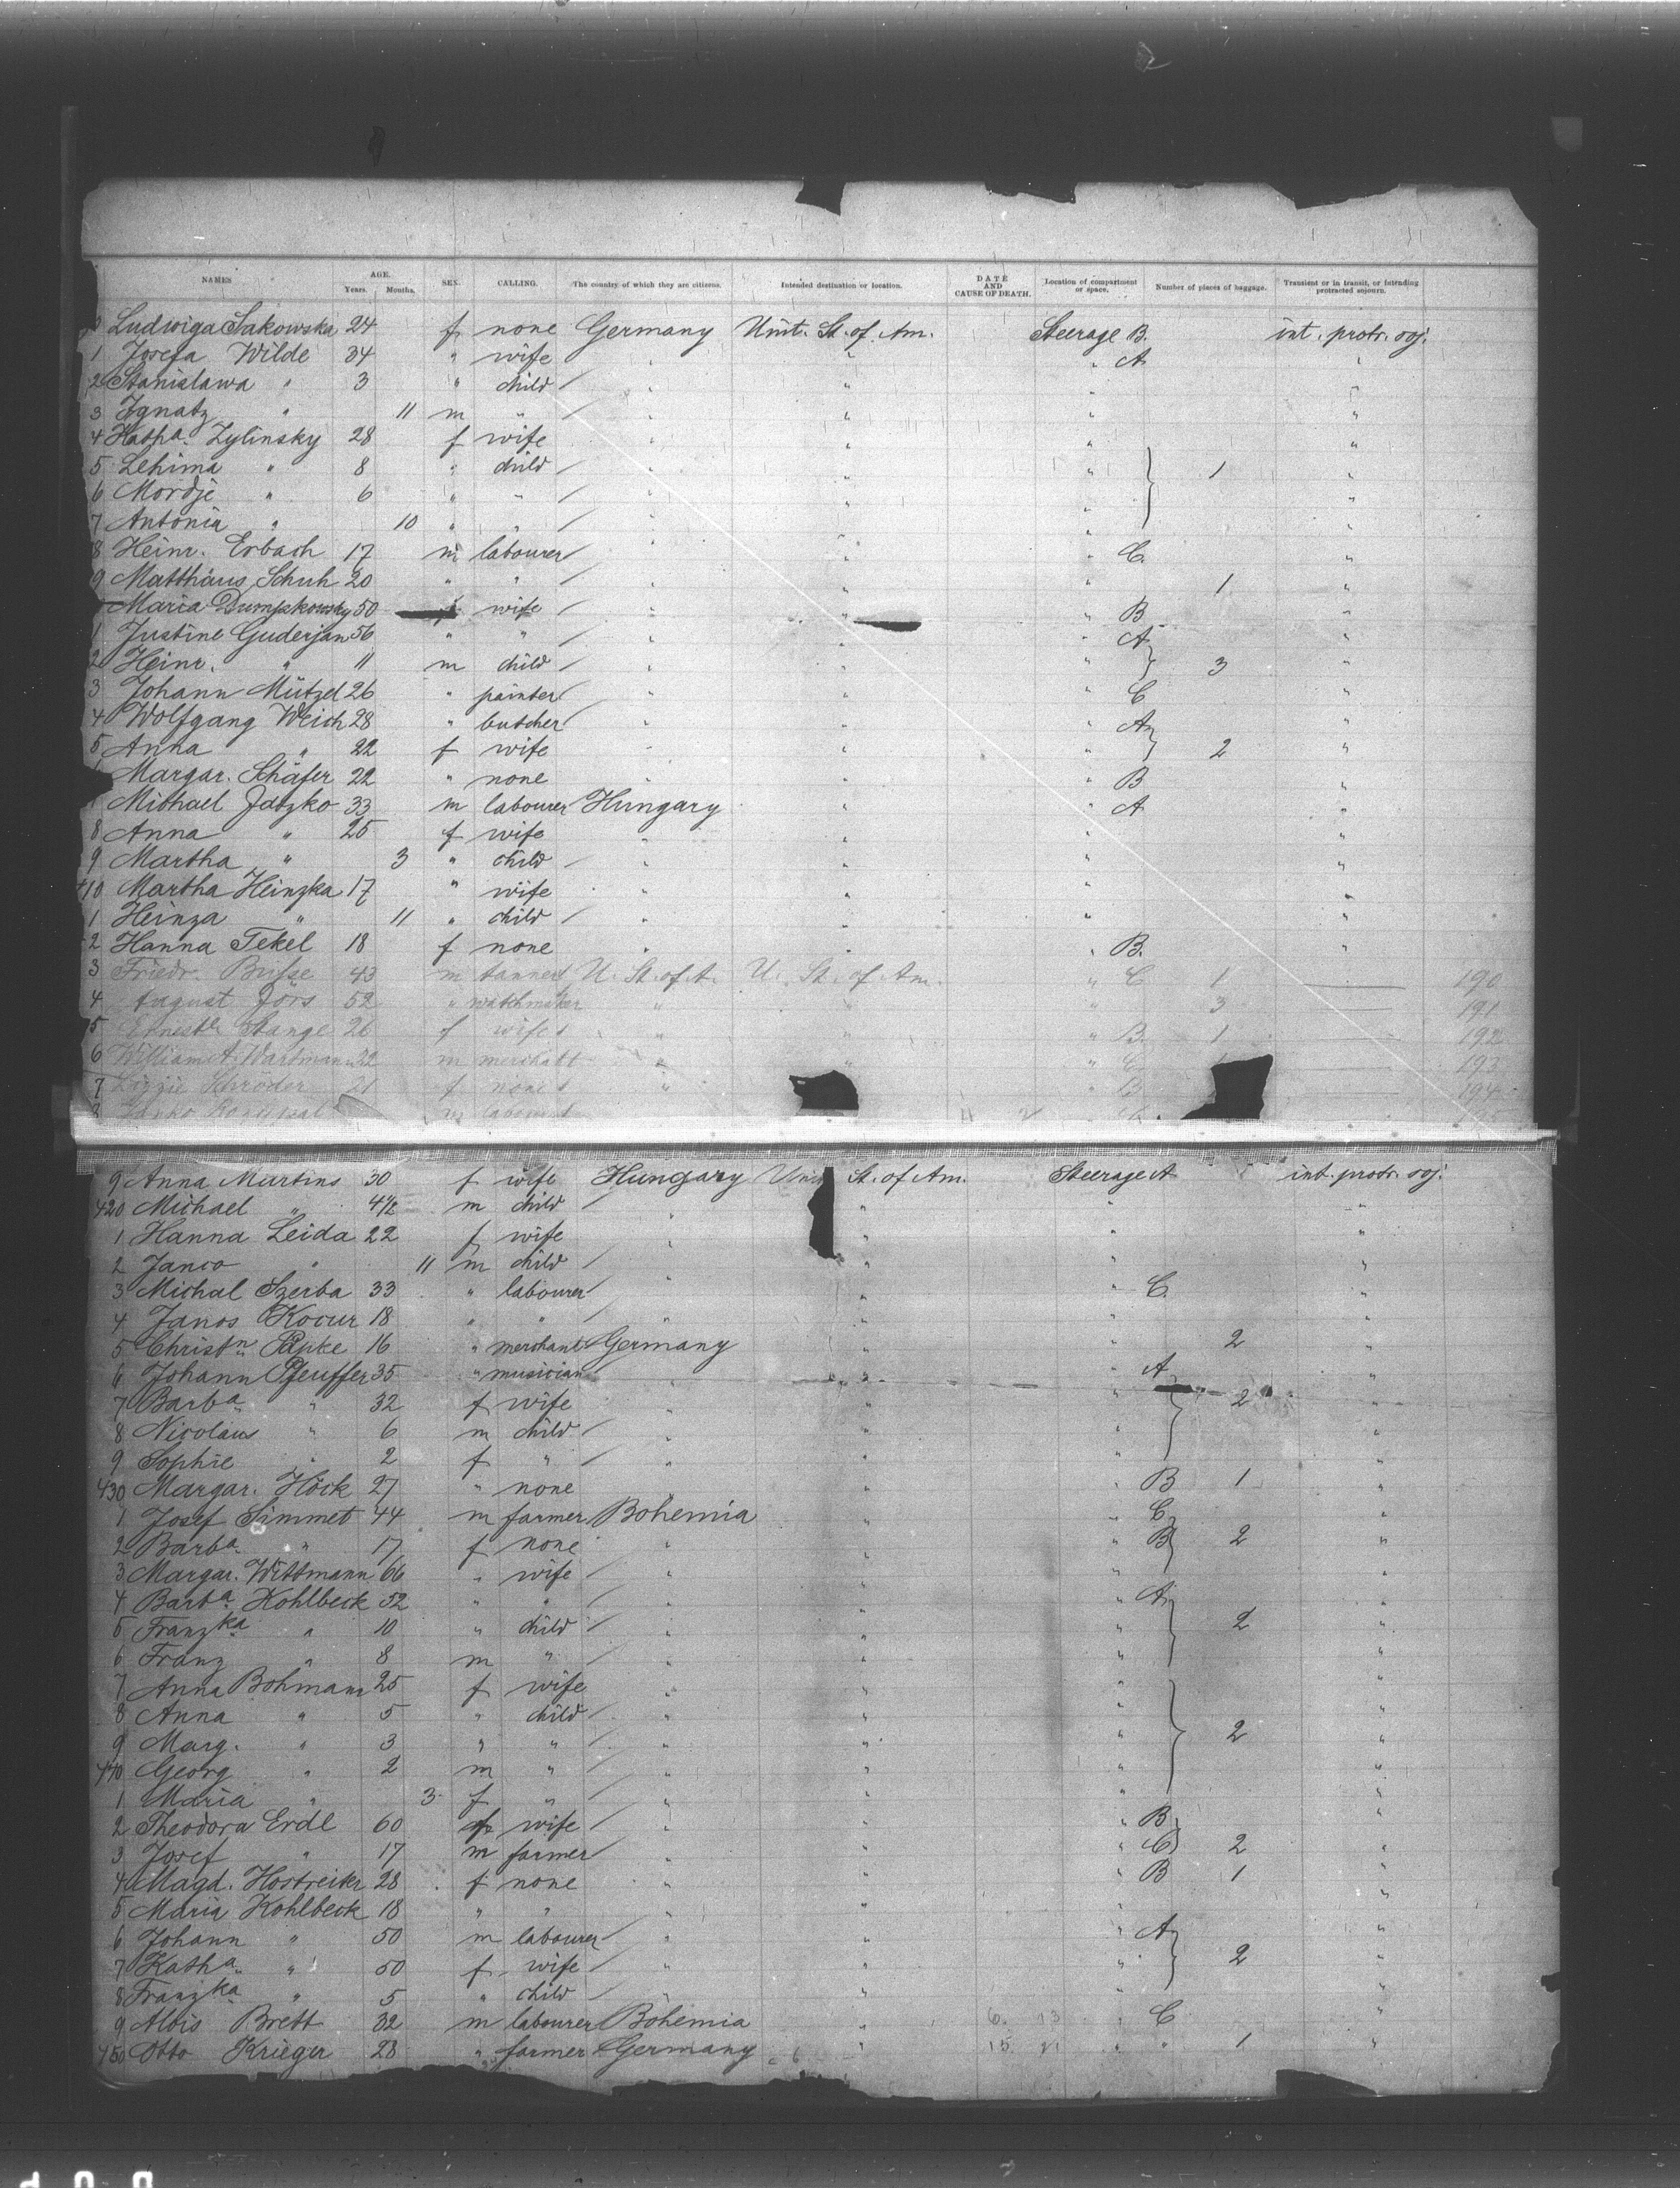 NAMES AGE. Years. Months. SEX. CALLING. The country of which they are citizens. Intended destination or location. DATE AND CAUSE OF DEATH. Location of compartment or space. Number of pieces of baggage. Transient or in transit, or intending protracted sojourn.
Ludwiga Sakowska 24 f none Germany Unit. St. of Am. Steerage B. int. protr. soj.
1 Josefa Wilde 34 " wife " " " A "
2 Stanislawa " 3 " child / " " " "
3 Ignatz " 11 m " / " " " "
4 Kath.a Zylinsky 28 f wife " " " "
5 Lehima " 8 " child / " " " 1 "
6 Mordje " 6 " " / " " " "
7 Antonia " 10 " " / " " " "
8 Heinr. Erbach 17 m labourer / " " " C. "
9 Matthäus Schuh 20 " " / " " " 1 "
Maria Dumpskowsky 50 f wife / " " " B "
1 Justine Guderjan 56 " " / " " " A "
2 Heinr. " 11 m child / " " " 3 "
3 Johann Mützel 26 " painter / " " " C "
4 Wolfgang Weich 28 " butcher / " " " A "
5 Anna " 22 f wife " " " 2 "
Margar. Schäfer 22 " none " " " B "
Michael Jatzko 33 m labourer Hungary " " A "
8 Anna " 25 f wife " " " "
9 Martha " 3 " child / " " " "
410 Martha Heinzka 17 " wife " " " "
1 Heinza " 11 " child / " " " "
2 Hanna Tekel 18 f none " " " B. "
3 Friedr. Busse 43 m tanner U. St. of A. U. St. of Am. " C 1 190
4 August Jörs 52 " watchmaker " " " 3 191
5 Ernest.e Stange 26 f wife " " " B. 1 192
6 William A. Wartmann 32 m merchant " " C 193
7 Lizzie Schröder 21 f none " " B 194
8 m labourer
9 Anna Martins 30 f wife Hungary Unit St. of Am. Steerage A int. protr. soj.
420 Michael " 4½ m child / " " " "
1 Hanna Leida 22 f wife " " " "
2 Janco " 11 m child / " " "
3 Michal Szerba 33 " labourer / " " " C. "
4 Janos Kocur 18 " " / " " " "
5 Christ.n Papke 16 " merchant Germany " " 2 "
6 Johann Pfeuffer 35 " musician " " " A "
7 Barb.a " 32 f wife / " " " 2 "
8 Nicolaus " 6 m child / " " " "
9 Sophie " 2 f " / " " " "
430 Margar. Höck 27 " none " " " B 1 "
1 Josef Simmet 44 m farmer Bohemia " " C "
2 Barb.a " 17 f none " " " B 2 "
3 Margar. Wittmann 66 " wife / " " "
4 Barb.a Kohlbeck 52 " " / " " " A "
5 Franz.ka " 10 " child / " " " 2 "
6 Franz " 8 m " / " " " "
7 Anna Bohmann 25 f wife " " " "
8 Anna " 5 " child / " " " "
9 Marg. " 3 " " / " " " 2 "
440 Georg " 2 m " / " " " "
1 Maria " 3 f " / " " " "
2 Theodora Erdl 60 f wife / " " " B "
3 Josef " 17 m farmer / " " " C 2 "
4 Magd. Hostreiter 28 f none " " " B 1 "
5 Maria Kohlbeck 18 " " " " " "
6 Johann " 50 m labourer / " " " A "
7 Kath.a " 50 f wife / " " " 2 "
8 Franz.ka " 5 " child / " " " "
9 Alois Brett 32 m labourer Bohemia " " C "
450 Otto Krieger 28 " farmer Germany " " " 1 "